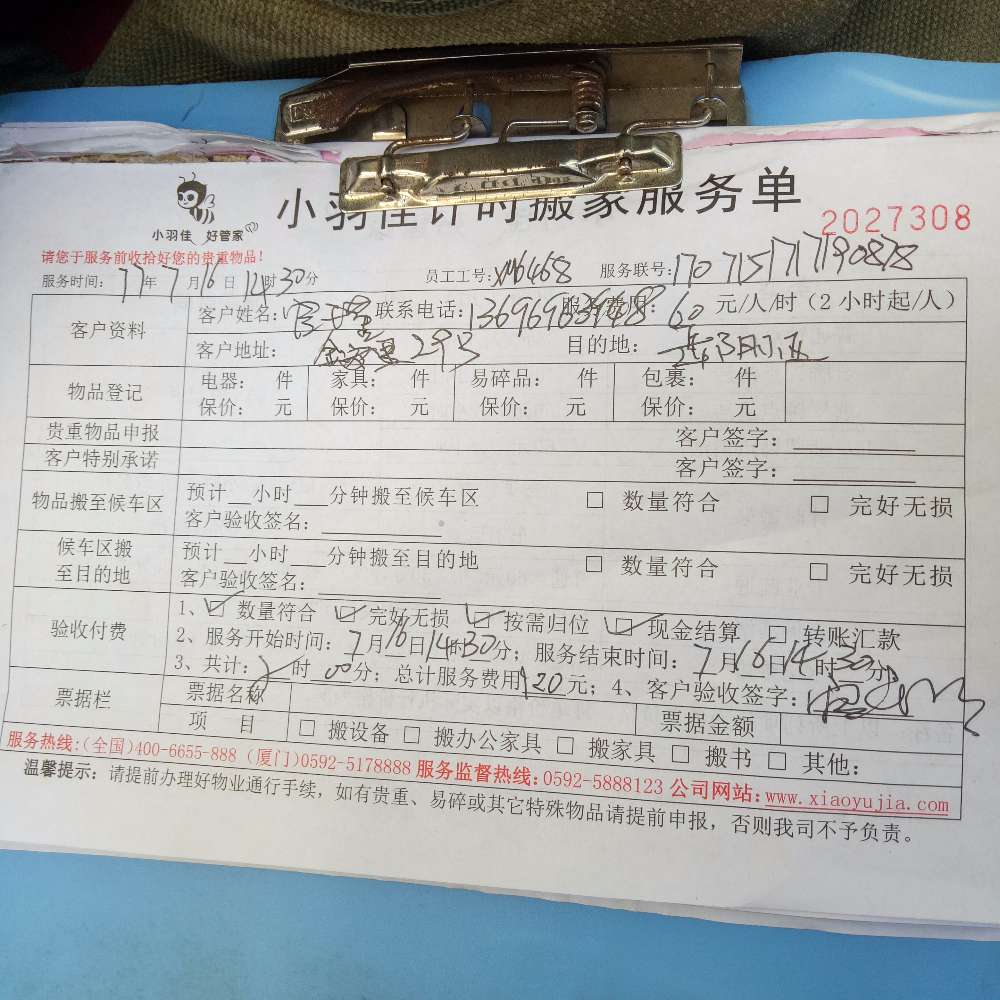 小羽佳计时搬家服务单
小羽佳 好管家
2027308
请您于服务前收拾好您的贵重物品!
服务时间: 17年7月16日14时30分 员工工号: 服务联号:
客户资料 客户姓名: 联系电话: 服务费用: 60元/人/时(2小时起/人)
客户地址: 29号 目的地:
物品登记 电器: 件 家具: 件 易碎品: 件 包裹: 件
保价: 元 保价: 元 保价: 元 保价: 元
贵重物品申报 客户签字:
客户特别承诺 客户签字:
物品搬至候车区 预计__小时___分钟搬至候车区 □ 数量符合 □ 完好无损
客户验收签名:
候车区搬至目的地 预计__小时___分钟搬至目的地 □ 数量符合 □ 完好无损
客户验收签名:
验收付费 1、☑数量符合 ☑完好无损 ☑按需归位 ☑现金结算 □转账汇款
2、服务开始时间: 7月16日14时30分; 服务结束时间: 7月16日14时30分
3、共计: 2时00分; 总计服务费用120元; 4、客户验收签字:
票据栏 票据名称 票据金额
项 目 □ 搬设备 □ 搬办公家具 □ 搬家具 □ 搬书 □ 其他:
服务热线:(全国)400-6655-888 (厦门)0592-5178888 服务监督热线:0592-5888123 公司网站:www.xiaoyujia.com
温馨提示: 请提前办理好物业通行手续,如有贵重、易碎或其它特殊物品请提前申报,否则我司不予负责。